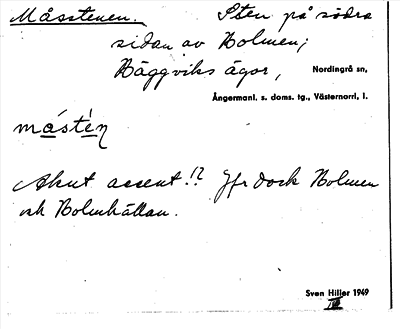 Måsstenen. Sten på södra
sidan av Bolmen;
Bäggviks ägor, Nordingrå sn,
Ångermanl. s. doms. tg., Västernorrl, l.
måstén
Akut accent!? Jfr dock Bolmen
och Bolmhällan.
Sven Hiller 1949